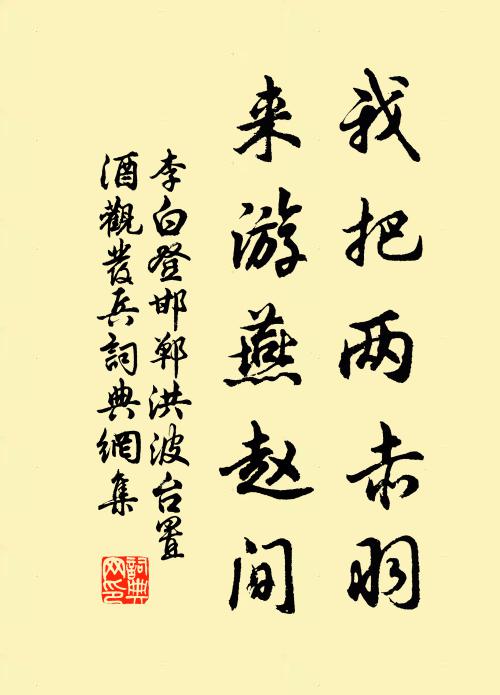 我把两赤羽
来游燕赵间
李白登邯郸洪波台置
酒觀發兵詞典網集
詞典
网印